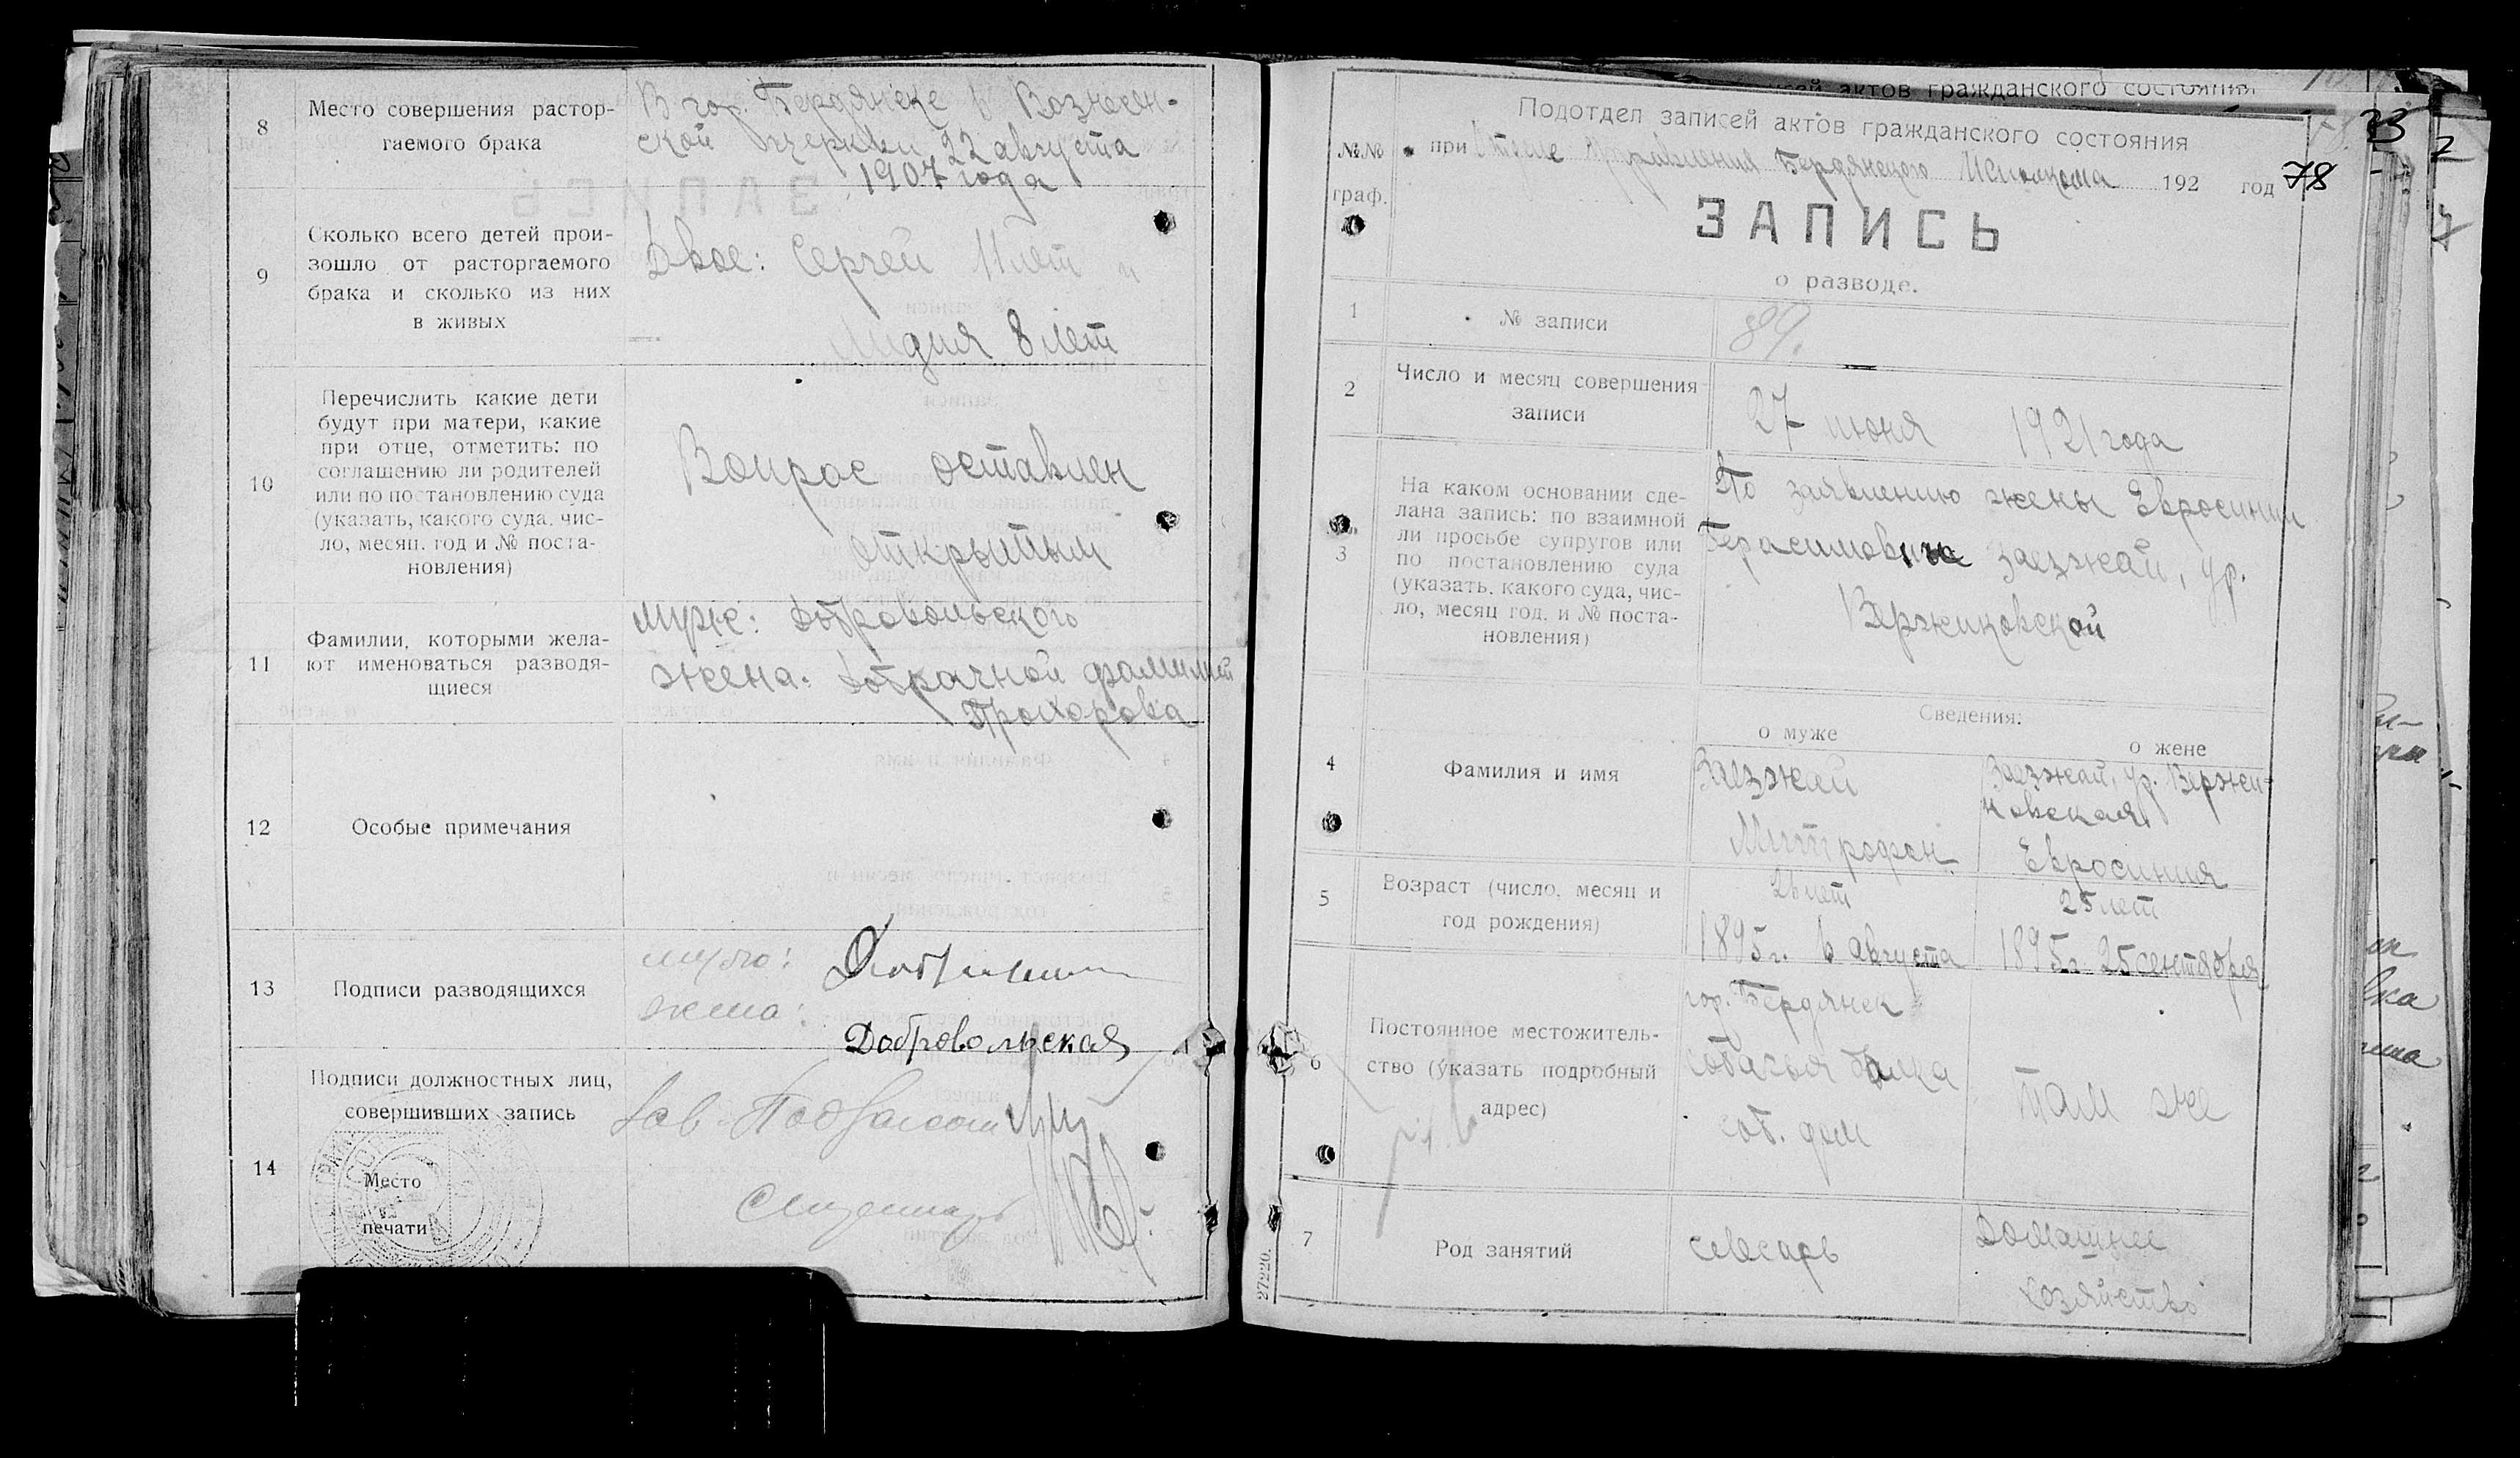 8
Место совершения растор-
гаемого брака
В гор. Бердянске в Вознесен-
ской церкви 22 августа
1907 года
9
Сколько всего детей прои-
зошло от расторгаемого
брака и сколько из них
в живых
Двое: Сергей 11 лет и
Лидия 8 лет
10
Перечислить какие дети
будут при матери, какие
при отце, отметить: по
соглашению ли родителей
или по постановлению суда
(указать, какого суда, чис-
ло, месяц, год и № поста-
новления)
Вопрос оставлен
открытым
11
Фамилии, которыми жела-
ют именоваться разводя-
щиеся
муж: Добровольского
жена: добрачной фамилией
Прохорова
12
Особые примечания
13
Подписи разводящихся
муж:
жена:
Добровольская
14
Подписи должностных лиц,
совершивших запись
Место
печати
Зав.
№№
граф.
Подотдел записей актов гражданского состояния
при Отделе Управления Бердянского Исполкома 192 год
78
ЗАПИСЬ
о разводе.
1
№ записи
89.
2
Число и месяц совершения
записи
27 июня 1921 года
3
На каком основании сде-
лана запись: по взаимной
ли просьбе супругов или
по постановлению суда
(указать, какого суда, чис-
ло, месяц год, и № поста-
новления)
По заявлению жены Евросинии
Заезжай, ур.
Вержиковской
Сведения:
о муже
о жене
4
Фамилия и имя
Заезжай
Митрофан
Заезжай, ур. Вержи-
ковская
Евросиния
5
Возраст (число, месяц и
год рождения)
26 лет
1895 г. 6 августа
25 лет
1895 г. 25 сентября
6
Постоянное местожитель-
ство (указать подробный
адрес)
гор. Бердянск
Собачья балка
соб. дом
там же
7
Род занятий
слесарь
Домашнее
хозяйство
27220.